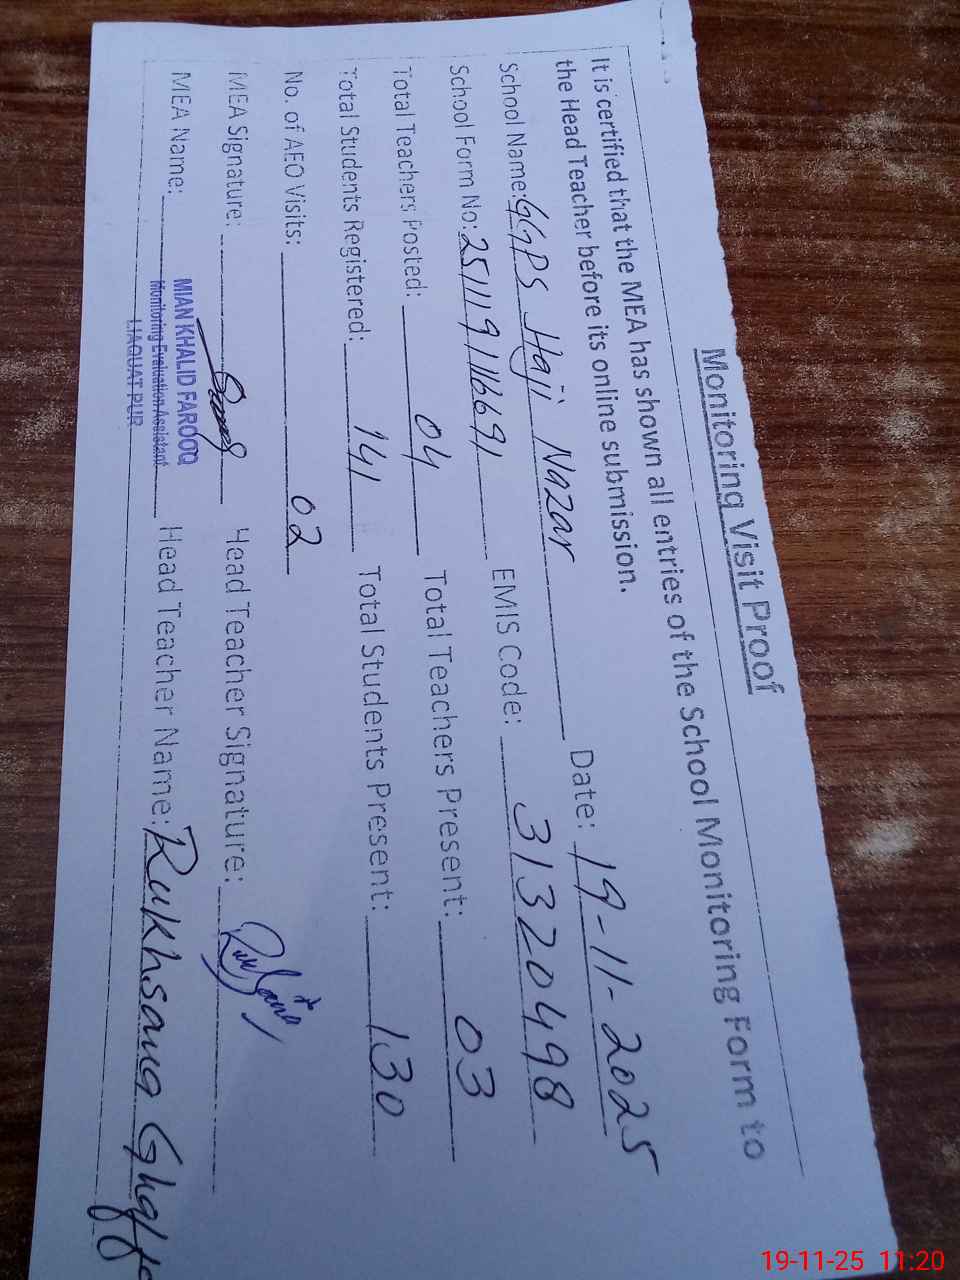 Monitoring Visit Proof
It is certified that the MEA has shown all entries of the School Monitoring Form to
the Head Teacher before its online submission.
School Name: GGPS Haji Nazar Date: 19-11-2025
School Form No: 2511191116691 EMIS Code: 31320498
Total Teachers Posted: 04 Total Teachers Present: 03
Total Students Registered: 141 Total Students Present: 130
No. of AEO Visits: 02
MEA Signature: Head Teacher Signature:
MEA Name: MIAN KHALID FAROOQ Head Teacher Name: Rukhsana
Monitoring Evaluation Assistant
LIAQUAT PUR
19-11-25 11:20